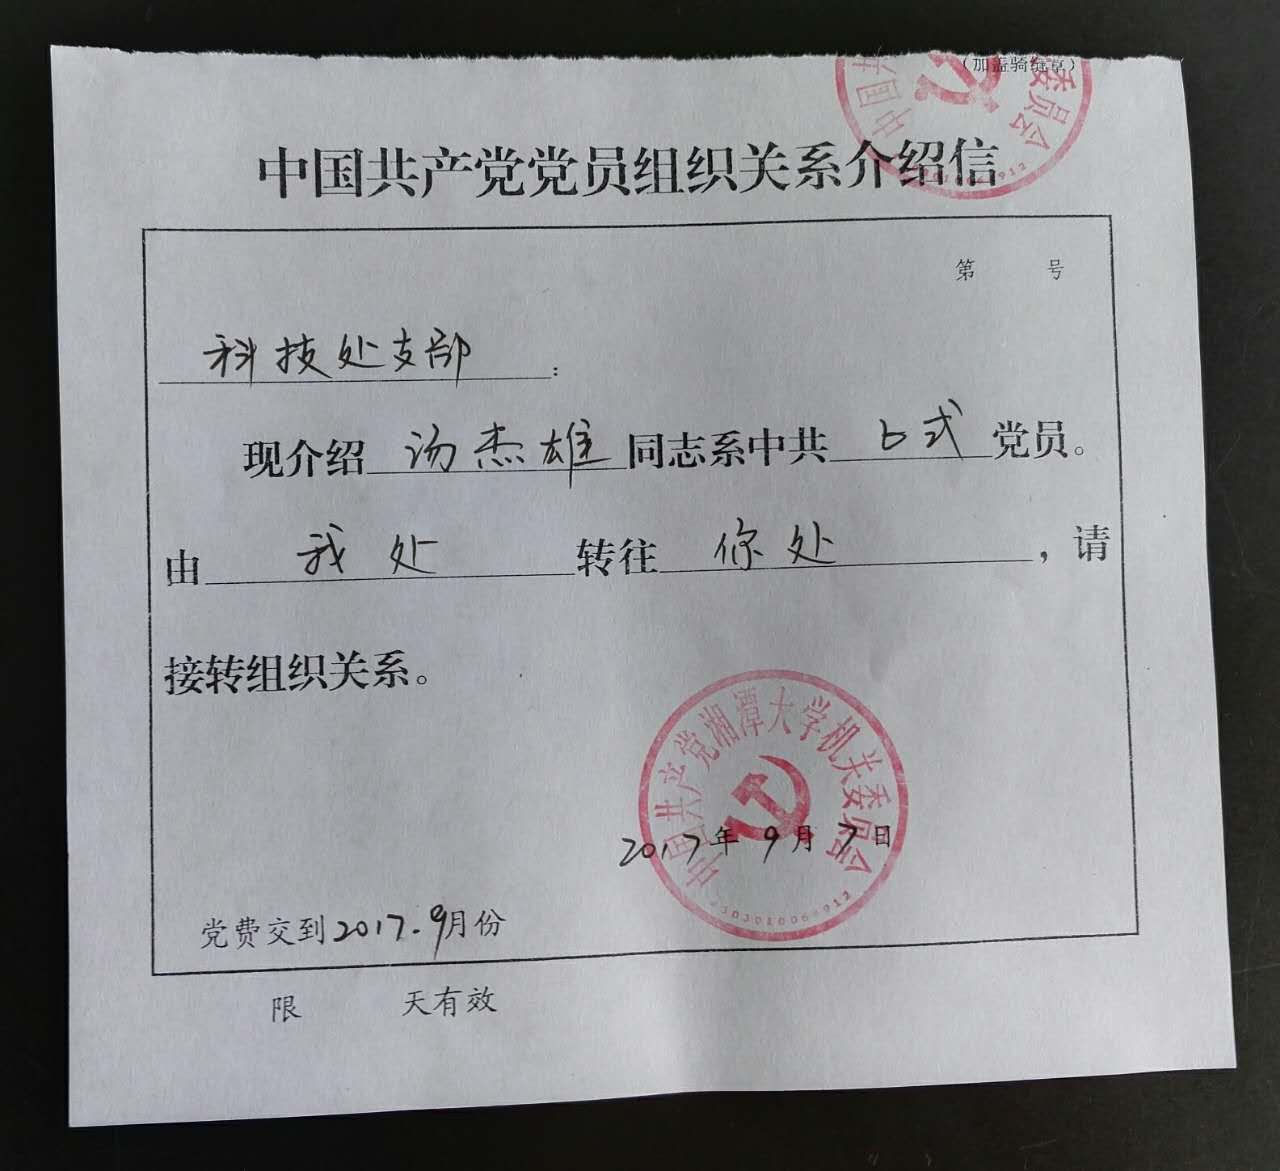 （加盖骑缝章）
中国共产党党员组织关系介绍信
第 号
科技处支部：
现介绍汤杰雄同志系中共正式党员。
由我处转往你处，请
接转组织关系。
中国共产党湘潭大学机关委员会
2017年9月7日
党费交到2017.9月份
限 天有效